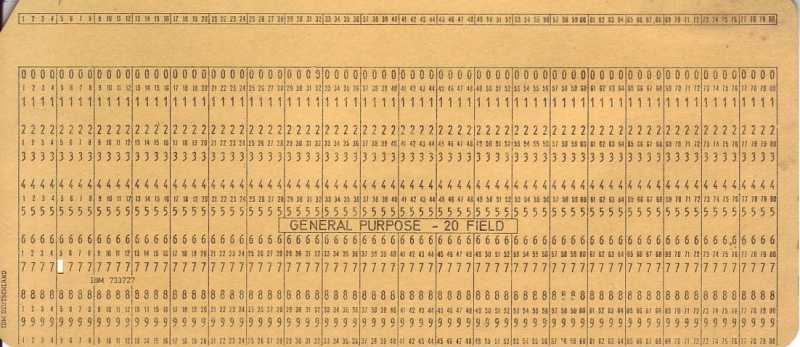 1 2 3 4 5 6 7 8 9 10 11 12 13 14 15 16 17 18 19 20 21 22 23 24 25 26 27 28 29 30 31 32 33 34 35 36 37 38 39 40 41 42 43 44 45 46 47 48 49 50 51 52 53 54 55 56 57 58 59 60 61 62 63 64 65 66 67 68 69 70 71 72 73 74 75 76 77 78 79 80
0000 0000 0000 0000 0000 0000 0000 0000 0000 0000 0000 0000 0000 0000 0000 0000 0000 0000 0000 0000
1 2 3 4 5 6 7 8 9 10 11 12 13 14 15 16 17 18 19 20 21 22 23 24 25 26 27 28 29 30 31 32 33 34 35 36 37 38 39 40 41 42 43 44 45 46 47 48 49 50 51 52 53 54 55 56 57 58 59 60 61 62 63 64 65 66 67 68 69 70 71 72 73 74 75 76 77 78 79 80
1111 1111 1111 1111 1111 1111 1111 1111 1111 1111 1111 1111 1111 1111 1111 1111 1111 1111 1111 1111
2222 2222 2222 2222 2222 2222 2222 2222 2222 2222 2222 2222 2222 2222 2222 2222 2222 2222 2222 2222
1 2 3 4 5 6 7 8 9 10 11 12 13 14 15 16 17 18 19 20 21 22 23 24 25 26 27 28 29 30 31 32 33 34 35 36 37 38 39 40 41 42 43 44 45 46 47 48 49 50 51 52 53 54 55 56 57 58 59 60 61 62 63 64 65 66 67 68 69 70 71 72 73 74 75 76 77 78 79 80
3333 3333 3333 3333 3333 3333 3333 3333 3333 3333 3333 3333 3333 3333 3333 3333 3333 3333 3333 3333
4444 4444 4444 4444 4444 4444 4444 4444 4444 4444 4444 4444 4444 4444 4444 4444 4444 4444 4444 4444
1 2 3 4 5 6 7 8 9 10 11 12 13 14 15 16 17 18 19 20 21 22 23 24 25 26 27 28 29 30 31 32 33 34 35 36 37 38 39 40 41 42 43 44 45 46 47 48 49 50 51 52 53 54 55 56 57 58 59 60 61 62 63 64 65 66 67 68 69 70 71 72 73 74 75 76 77 78 79 80
5555 5555 5555 5555 5555 5555 5555 5555 5555 5555 5555 5555 5555 5555 5555 5555 5555 5555 5555 5555
GENERAL PURPOSE - 20 FIELD
6666 6666 6666 6666 6666 6666 6666 6666 6666 6666 6666 6666 6666 6666 6666 6666 6666 6666 6666 6666
1 2 3 4 5 6 7 8 9 10 11 12 13 14 15 16 17 18 19 20 21 22 23 24 25 26 27 28 29 30 31 32 33 34 35 36 37 38 39 40 41 42 43 44 45 46 47 48 49 50 51 52 53 54 55 56 57 58 59 60 61 62 63 64 65 66 67 68 69 70 71 72 73 74 75 76 77 78 79 80
7777 777 7777 7777 7777 7777 7777 7777 7777 7777 7777 7777 7777 7777 7777 7777 7777 7777 7777 7777
IBM 733727
8888 8888 8888 8888 8888 8888 8888 8888 8888 8888 8888 8888 8888 8888 8888 8888 8888 8888 8888 8888
1 2 3 4 5 6 7 8 9 10 11 12 13 14 15 16 17 18 19 20 21 22 23 24 25 26 27 28 29 30 31 32 33 34 35 36 37 38 39 40 41 42 43 44 45 46 47 48 49 50 51 52 53 54 55 56 57 58 59 60 61 62 63 64 65 66 67 68 69 70 71 72 73 74 75 76 77 78 79 80
9999 9999 9999 9999 9999 9999 9999 9999 9999 9999 9999 9999 9999 9999 9999 9999 9999 9999 9999 9999
1 2 3 4 5 6 7 8 9 10 11 12 13 14 15 16 17 18 19 20 21 22 23 24 25 26 27 28 29 30 31 32 33 34 35 36 37 38 39 40 41 42 43 44 45 46 47 48 49 50 51 52 53 54 55 56 57 58 59 60 61 62 63 64 65 66 67 68 69 70 71 72 73 74 75 76 77 78 79 80
IBM DEUTSCHLAND